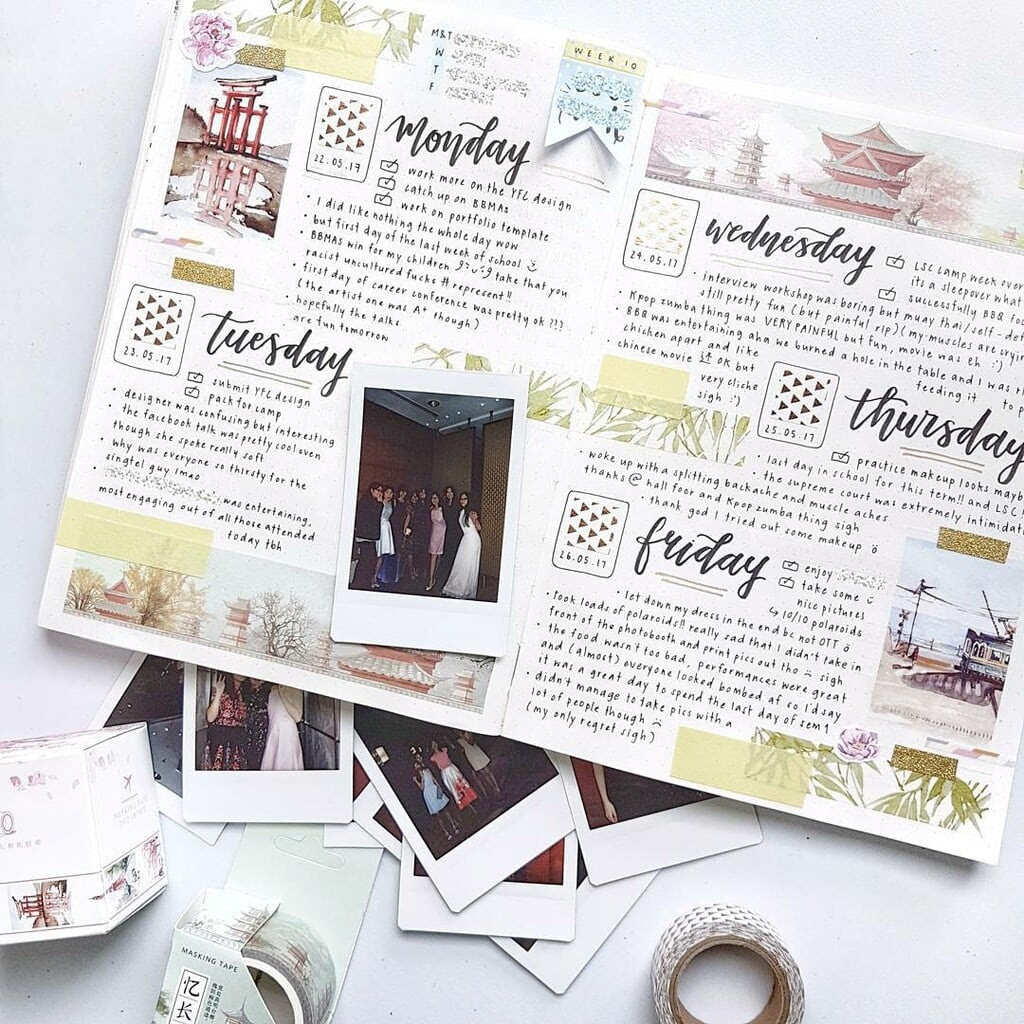 M&T
W
T
F
WEEK 10
22.05.17
monday
work more on the YFC design
catch up on BBMAs
work on portfolio template
• I did like nothing the whole day wow
• but first day of the last week of school
• BBMAs win for my children take that you
racist uncultured fucks # represent!!
• first day of career conference was pretty ok ???
(the artist one was A+ though)
• hopefully the talks
are fun tomorrow
23.05.17
tuesday
submit YFC design
pack for camp
• designer was confusing but interesting
• the facebook talk was pretty cool even
though she spoke really soft
• why was everyone so thirsty for the
singtel guy lmao
• was entertaining,
most engaging out of all those attended
today tbh
24.05.17
wednesday
LSC camp week over
its a sleepover what
successfully BBQ foo
• interview workshop was boring but muay thai/self-def
still pretty fun (but painful rip) (my muscles are crying
• Kpop zumba thing was VERY PAINFUL but fun, movie was eh :')
• BBQ was entertaining aha we burned a hole in the table and I was
chicken apart and like feeding it to p
chinese movie ok but
very cliche
sigh :')
25.05.17
thursday
practice makeup looks mayb
• last day in school for this term!! and LSC
• the supreme court was extremely intimidat
• woke up with a splitting backache and muscle aches
thanks @ hall foor and Kpop zumba thing sigh
• thank god I tried out some makeup
26.05.17
friday
enjoy
take some
nice pictures
↳ 10/10 polaroids
• let down my dress in the end bc not OTT
• took loads of polaroids!! really sad that I didn't take in
front of the photobooth and print pics out tho sigh
• the food wasn't too bad, performances were great
and (almost) everyone looked bombed af so I'd say
it was a great day to spend the last day of sem 1
• didn't manage to take pics with a
lot of people though
(my only regret sigh)
MASKING TAPE
忆长